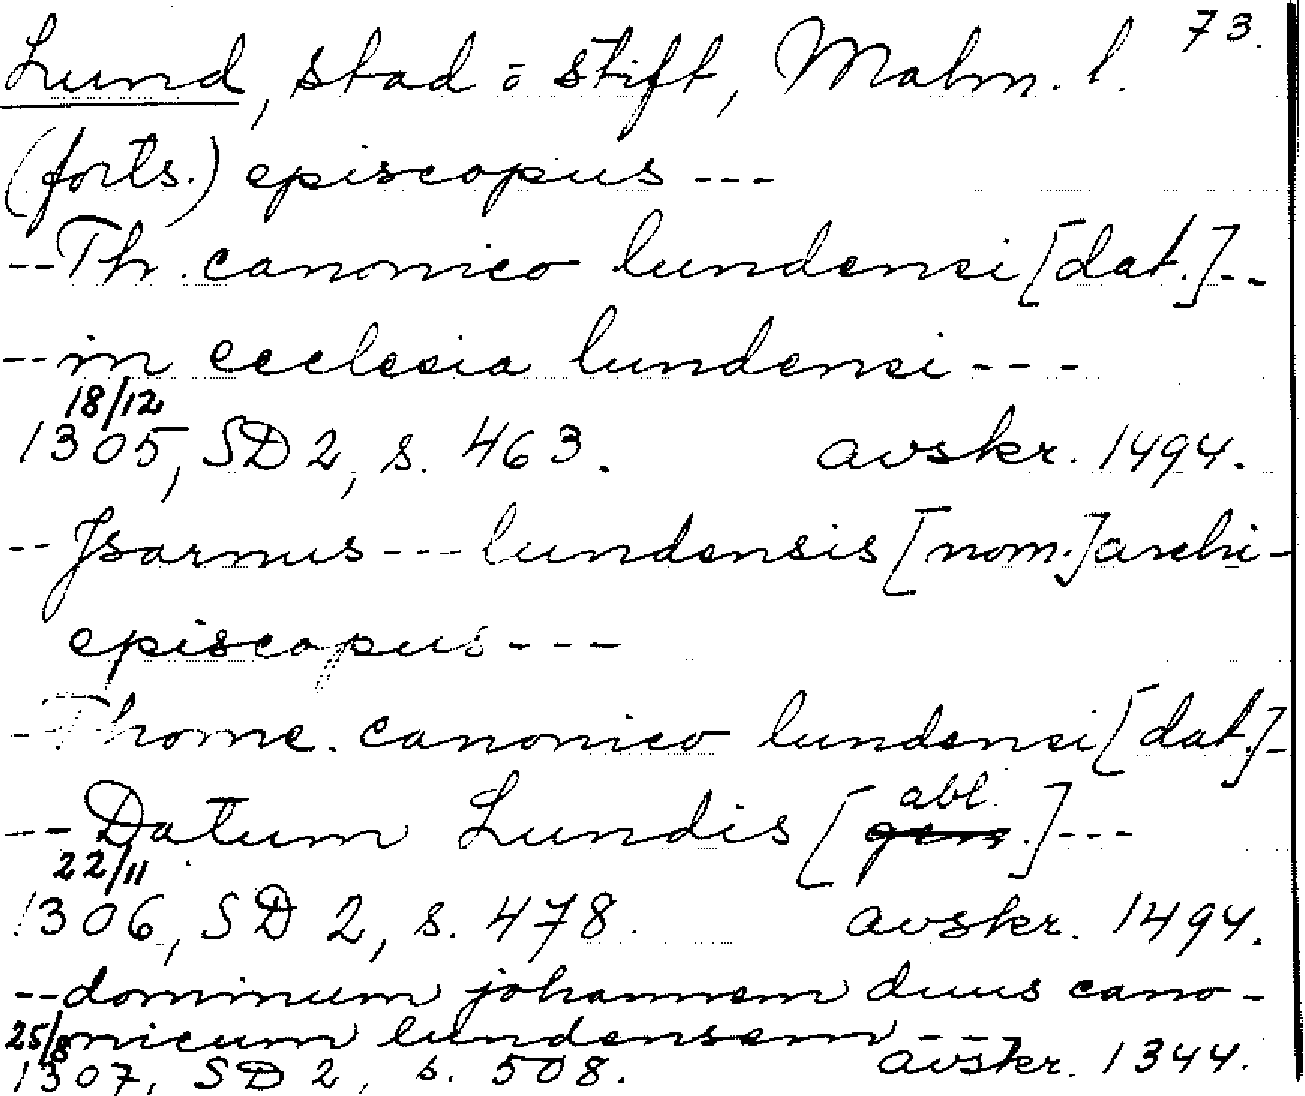 73.
Lund, stad o stift, Malm. l.
(forts.) episcopus ---
--Th. canonico lundensi [dat.]--
--in ecclesia lundensi---
18/12
1305, SD 2, s. 463. avskr. 1494.
--Jsarnus---lundensis [nom.] archi-
episcopus---
-Thome. canonico lundensi [dat.]-
---Datum Lundis [gen.]---
abl.
22/11
1306, SD 2, s. 478. avskr. 1494.
--dominum johannem duus cano-
nicum lundensem---
25/8
1307, SD 2, s. 508. avskr. 1344.